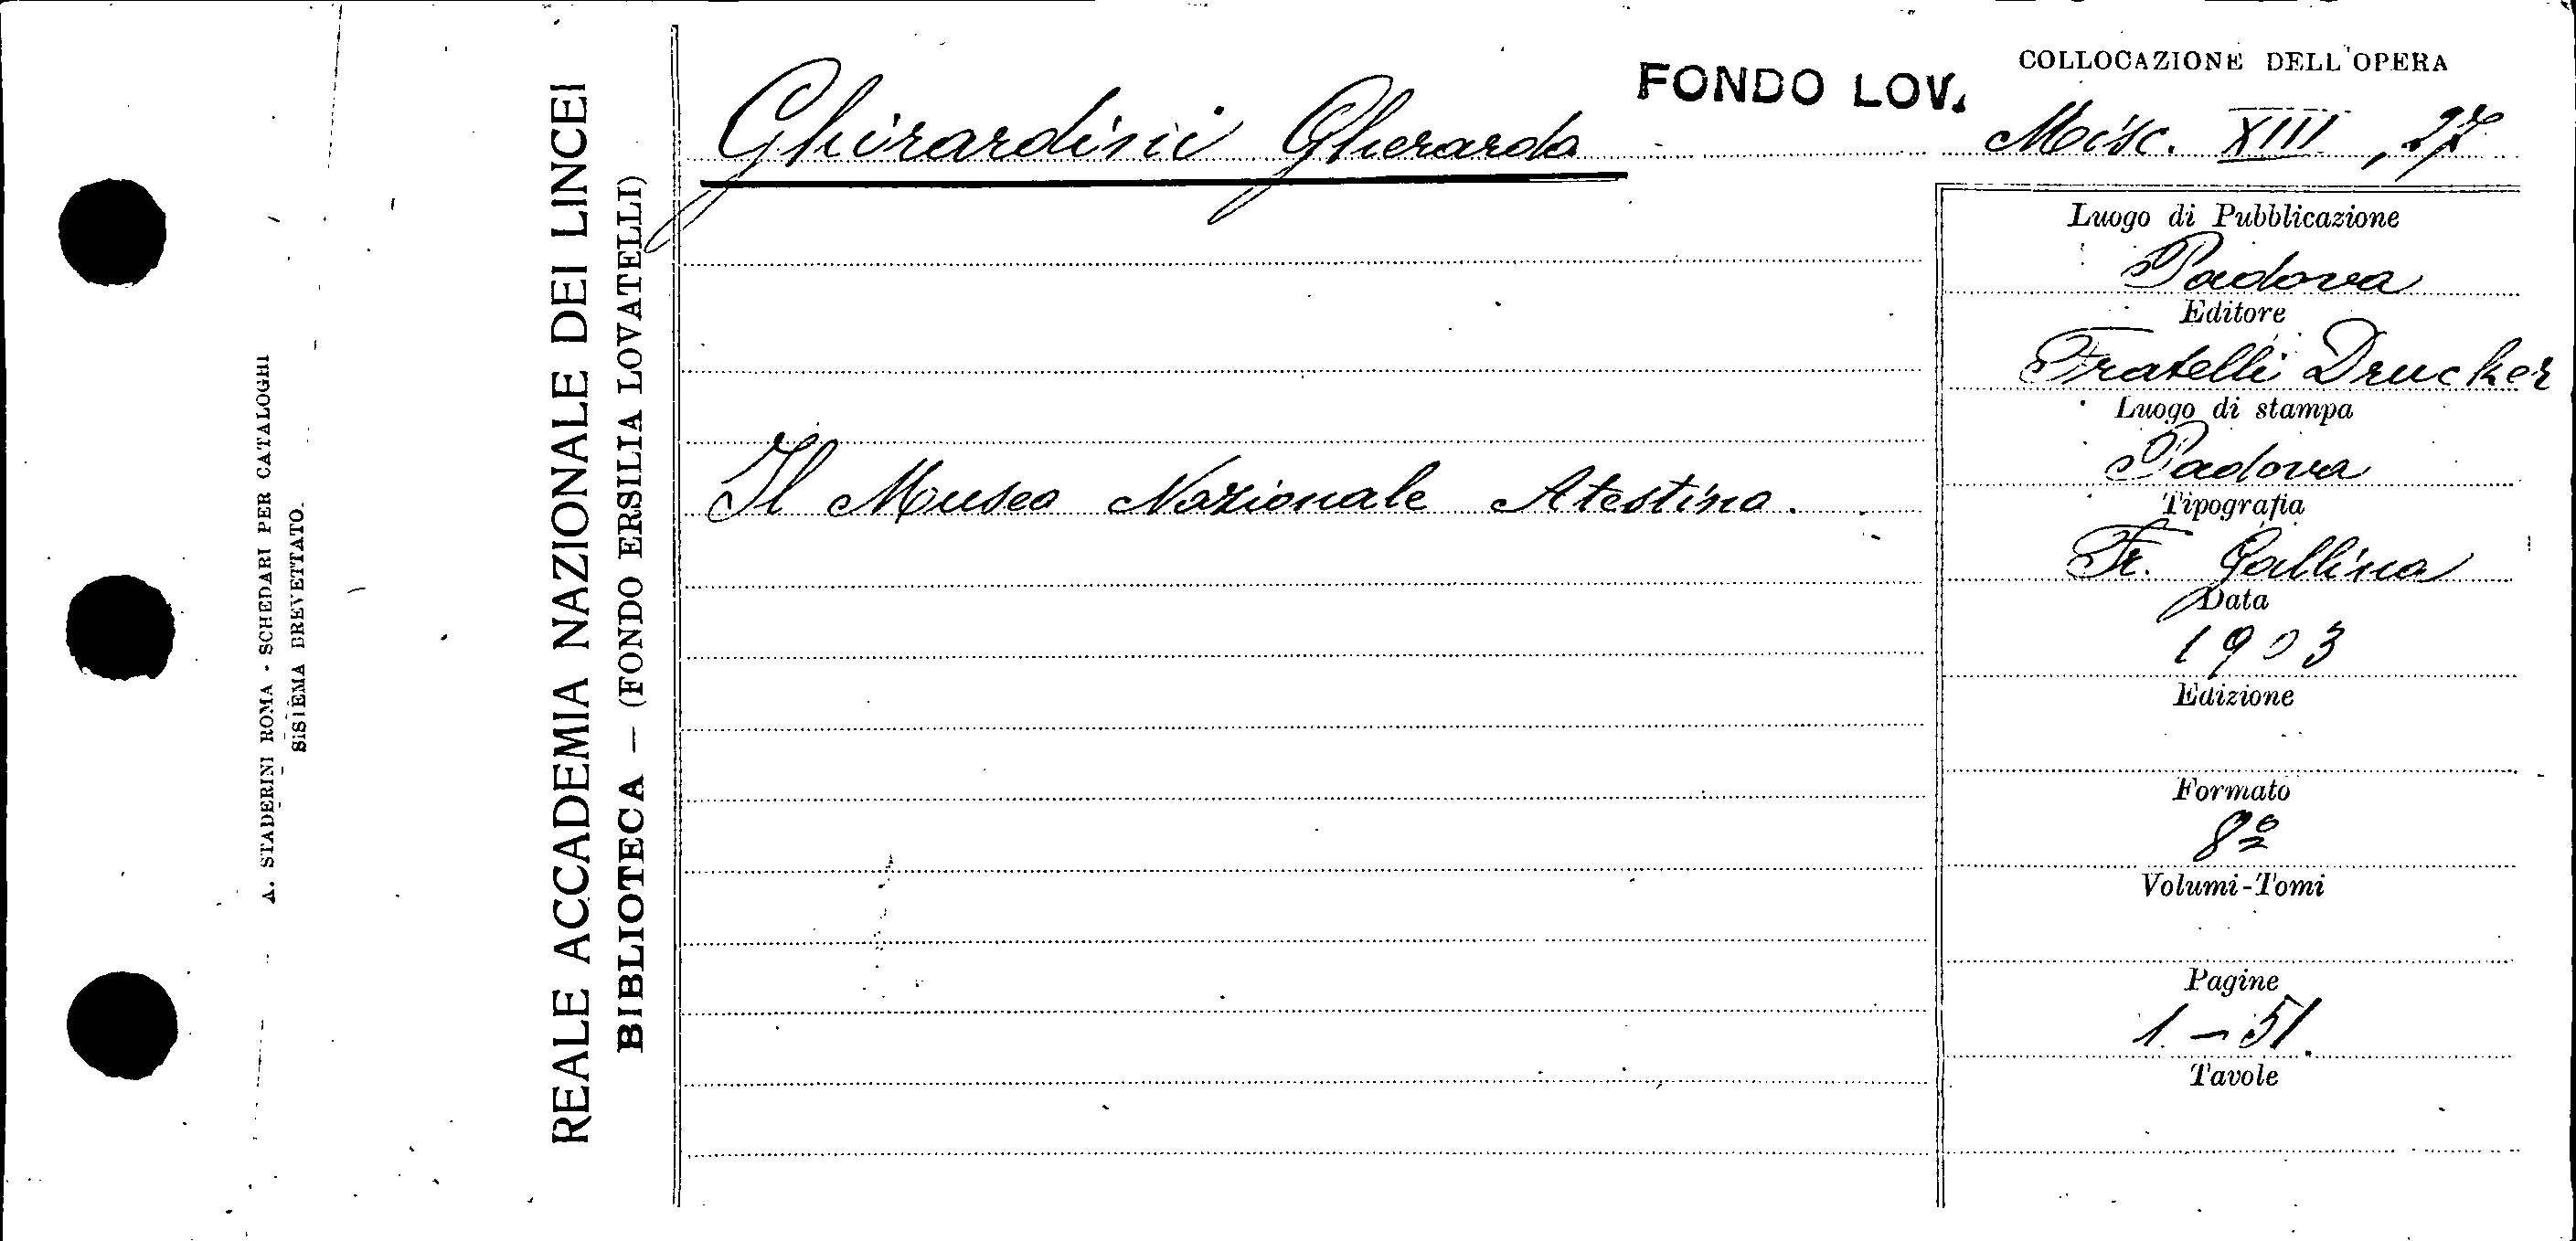 A. STADERINI ROMA - SCHEDARI PER CATALOGHI
SISTEMA BREVETTATO.
REALE ACCADEMIA NAZIONALE DEI LINCEI
BIBLIOTECA — (FONDO ERSILIA LOVATELLI)
Ghirardini Gherardo
FONDO LOV.
COLLOCAZIONE DELL'OPERA
Misc. XIII, 27
Il Museo Nazionale Atestino.
Luogo di Pubblicazione
Padova
Editore
Fratelli Drucker
Luogo di stampa
Padova
Tipografia
Fr. Gallina
Data
1903
Edizione
Formato
8º
Volumi-Tomi
Pagine
1 - 51.
Tavole